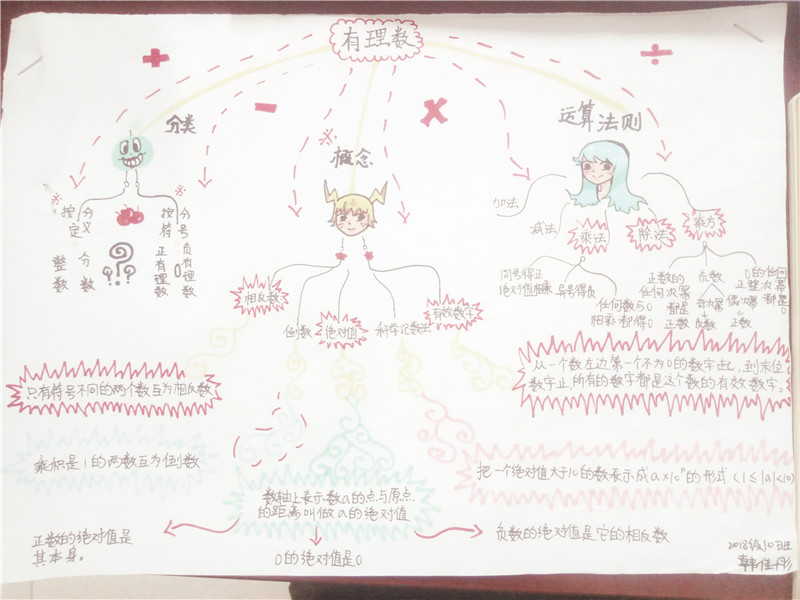 有理数
+
-
×
÷
分类
概念
运算法则
※
※
※
按定义
分
按符号
分
整数
分数
?
正有理数
0
负有理数
相反数
倒数
绝对值
科学记数法
有效数字
加法
减法
乘法
除法
乘方
同号得正
绝对值相乘
异号得负
任何数与0
相乘都得0
正数的
任何次幂
都是
正数
负数
奇次幂
负数
偶次幂
正数
0的任何
正整次幂
都是0
只有符号不同的两个数互为相反数
从一个数左边第一个不为0的数字起,到末位
数字止,所有的数字都是这个数的有效数字。
乘积是1的两数互为倒数
把一个绝对值大于10的数表示成a×10ⁿ的形式(1≤|a|<10)
数轴上表示数a的点与原点
的距离叫做a的绝对值
正数的绝对值是
其本身。
0的绝对值是0
负数的绝对值是它的相反数
2018级10班
韩佳彤